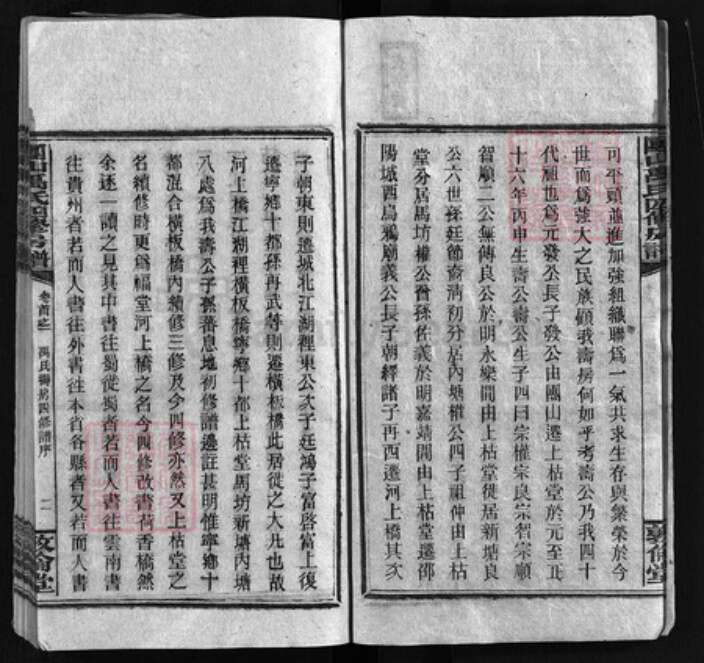 可平頭並進加強組織聯為一氣共求生存與繁榮於今
世而為強大之民族顧我壽房何如乎考壽公乃我四十
代祖也為元發公長子發公由團山遷上枯堂於元至正
十六年丙申生壽公壽公生子四曰宗權宗良宗智宗順
智順二公無傳良公於明永樂間由上枯堂徙居新塘良
公六世孫廷節斎清初分居內塘權公四子祖伸由上枯
堂分居馬坊權公晉孫佐義於明嘉靖間由上枯堂遷邵
陽城西烏鴉廟義公長子朝經諸子再西遷河上橋其次
子朝東則遷城北江湖裡東公次子廷鴻子富啓富上復
遷寧鄉十都孫再武等則遷橫板橋此居徙之大凡也故
河上橋江湖裡橫板橋寧鄉十都上枯堂馬坊新塘內塘
八處為我壽公子孫蕃息地初修譜遷註甚明惟寧鄉十
都混合橫板橋內續修三修及今四修亦然又上枯堂之
名續修時更為福堂河上橋之名今四修改書荷香橋然
余逐一讀之見其中書往蜀徙蜀者若而人書往雲南書
往貴州者若而人書往外書往本省各縣者又若而人書
團山禹氏四修房譜
卷首之一
禹氏壽房四修譜序
二
敦倫堂